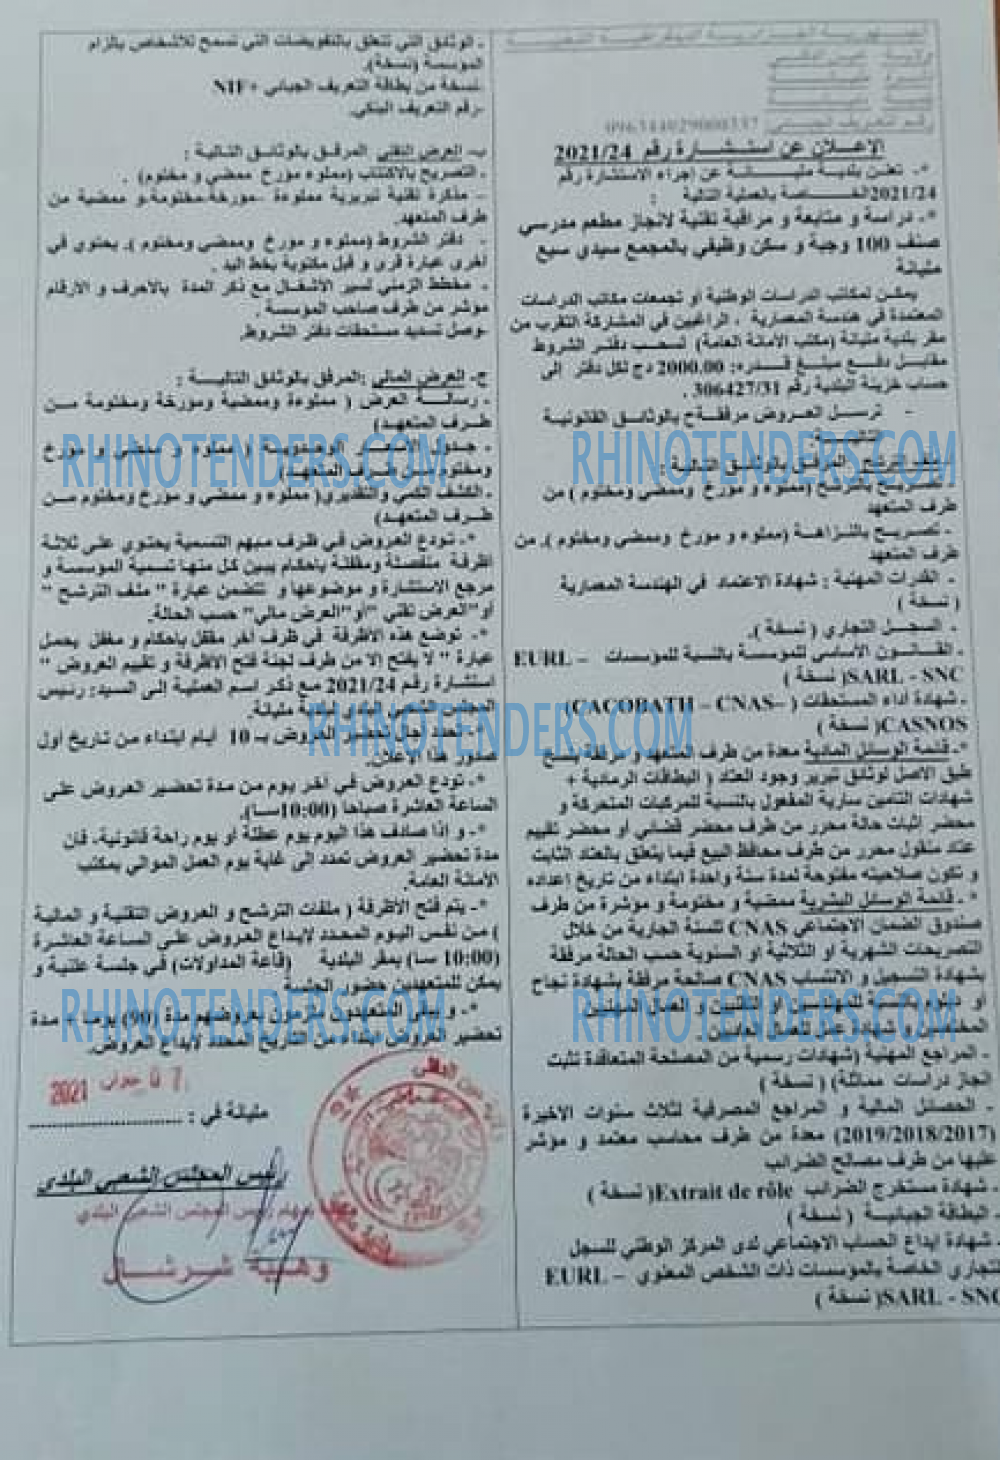 الجمهورية الجزائرية الديمقراطية الشعبية
ولاية عين الدفلى
دائرة مليانة
بلدية مليانة
رقم التعريف الجبائي:
الإعلان عن استشارة رقم 2021/24
*- تعلن بلدية مليانة عن إجراء الاستشارة رقم
2021/24 الخاصة بالعملية التالية :
*- دراسة و متابعة و مراقبة تقنية لانجاز مطعم مدرسي
صنف 100 وجبة و سكن وظيفي بالمجمع سيدي سبع
مليانة
يمكن لمكاتب الدراسات الوطنية أو تجمعات مكاتب الدراسات
المعتمدة في هندسة المعمارية ، الراغبين في المشاركة التقرب من
مقر بلدية مليانة (مكتب الأمانة العامة) لسحب دفتر الشروط
مقابل دفع مبلغ قدره: 2000.00 دج لكل دفتر إلى
حساب خزينة البلدية رقم 306427/31 .
- ترسل العروض مرفقة بالوثائق القانونية
التالية:
ملف الترشح المرفق بالوثائق التالية :
تصريح بالترشح (مملوء و مؤرخ وممضي ومختوم ) من
طرف المتعهد
- تصريح بالنزاهة (مملوء و مؤرخ وممضي ومختوم ). من
طرف المتعهد
- القدرات المهنية : شهادة الاعتماد في الهندسة المعمارية
( نسخة )
- السجل التجاري ( نسخة ).
- القانون الأساسي للمؤسسة بالنسبة للمؤسسات EURL –
SARL - SNC( نسخة )
- شهادة أداء المستحقات ( CACOBATH – CNAS–
CASNOS( نسخة )
*- قائمة الوسائل المادية معدة من طرف المتعهد و مرفقة بنسخ
طبق الأصل لوثائق تبرير وجود العتاد ( البطاقات الرمادية +
شهادات التامين سارية المفعول بالنسبة للمركبات المتحركة و
محضر إثبات حالة محرر من طرف محضر قضائي أو محضر تقييم
عتاد منقول محرر من طرف محافظ البيع فيما يتعلق بالعتاد الثابت
و تكون صلاحيته مفتوحة لمدة سنة واحدة ابتداء من تاريخ إعداده
*- قائمة الوسائل البشرية ممضية و مختومة و مؤشرة من طرف
صندوق الضمان الاجتماعي CNAS للسنة الجارية من خلال
التصريحات الشهرية او الثلاثية او السنوية حسب الحالة مرفقة
بشهادة التسجيل و الانتساب CNAS صالحة مرفقة بشهادة نجاح
أو دبلوم بالنسبة للمهندسين أو التقنيين و العمال المهنيين
المختصين، شهادة عمل للعمال العاديين.
- المراجع المهنية (شهادات رسمية من المصلحة المتعاقدة تثبت
انجاز دراسات مماثلة) ( نسخة )
- الحصائل المالية و المراجع المصرفية لثلاث سنوات الاخيرة
(2019/2018/2017) معدة من طرف محاسب معتمد و مؤشر
عليها من طرف مصالح الضرائب
- شهادة مستخرج الضرائب Extrait de rôle( نسخة )
- البطاقة الجبائية ( نسخة )
- شهادة إيداع الحساب الاجتماعي لدى المركز الوطني للسجل
التجاري الخاصة بالمؤسسات ذات الشخص المعنوي EURL –
SARL - SNC( نسخة )
- الوثائق التي تتعلق بالتفويضات التي تسمح للأشخاص بإلزام
المؤسسة (نسخة).
-نسخة من بطاقة التعريف الجبائي NIF+
-رقم التعريف البنكي.
ب- العرض التقني المرفق بالوثائق التالية :
- التصريح بالاكتتاب (مملوء مؤرخ ممضي و مختوم) .
- مذكرة تقنية تبريرية مملوءة -مورخة-مختومة-و ممضية من
طرف المتعهد.
- دفتر الشروط (مملوء و مؤرخ وممضي ومختوم ). يحتوي في
أخرى عبارة قرئ و قبل مكتوبة بخط اليد .
- مخطط الزمني لسير الاشغال مع ذكر المدة بالأحرف و الأرقام
مؤشر من طرف صاحب المؤسسة .
-وصل تسديد مستحقات دفتر الشروط.
ج- العرض المالي :المرفق بالوثائق التالية :
- رسالة العرض ( مملوءة وممضية ومورخة ومختومة من
طرف المتعهد)
- جدول الأسعار الوحدوية ( مملوء و ممضي و مؤرخ
ومختوم من طرف المتعهد)
- الكشف الكمي والتقديري( مملوء و ممضي و مورخ ومختوم من
طرف المتعهد)
*- تودع العروض في ظرف مبهم التسمية يحتوي على ثلاثة
أظرفة منفصلة ومقفلة بإحكام يبين كل منها تسمية المؤسسة و
مرجع الاستشارة و موضوعها و تتضمن عبارة " ملف الترشح "
أو"العرض تقني "أو"العرض مالي" حسب الحالة.
*- توضع هذه الأظرفة في ظرف آخر مقفل بإحكام و مغفل يحمل
عبارة " لا يفتح إلا من طرف لجنة فتح الأظرفة و تقييم العروض "
استشارة رقم 2021/24 مع ذكر اسم العملية إلى السيد: رئيس
المجلس الشعبي البلدي لبلدية مليانة.
*- تحدد أجل تحضير العروض بـ 10 أيام ابتداء من تاريخ أول
صدور هذا الاعلان.
*- تودع العروض في آخر يوم من مدة تحضير العروض على
الساعة العاشرة صباحا (10:00سا).
*- و إذا صادف هذا اليوم يوم عطلة أو يوم راحة قانونية، فان
مدة تحضير العروض تمدد الى غاية يوم العمل الموالي بمكتب
الأمانة العامة.
*- يتم فتح الأظرفة ( ملفات الترشح و العروض التقنية و المالية
) من نفس اليوم المحدد لإيداع العروض على الساعة العاشرة
(10:00 سا) بمقر البلدية (قاعة المداولات) في جلسة علنية و
يمكن للمتعهدين حضور الجلسة
*- و يبقى المتعهدون ملزمون بعروضهم مدة (90) يوما + مدة
تحضير العروض ابتداء من التاريخ المحدد لإيداع العروض.
07 جوان 2021
مليانة في : ....................
رئيس المجلس الشعبي البلدي
مكلف بمهام رئيس المجلس الشعبي البلدي
وهيبة شرشال
RHINOTENDERS.COM
RHINOTENDERS.COM
RHINOTENDERS.COM
RHINOTENDERS.COM
RHINOTENDERS.COM